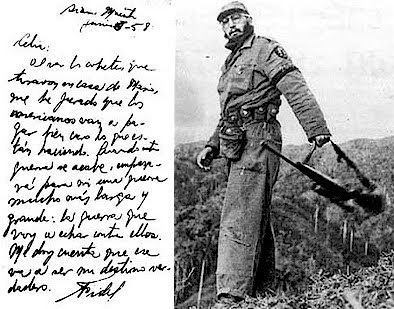 Sierra Maestra
Junio 5-58
Celia:
Al ver los cohetes que
tiraron en casa de Mario,
me he jurado que los
americanos van a pa-
gar bien caro lo que es-
tán haciendo. Cuando esta
guerra se acabe, empeza-
rá para mi una guerra
mucho más larga y
grande: la guerra que
voy a echar contra ellos.
Me doy cuenta que ese
va a ser mi destino ver-
dadero.
Fidel